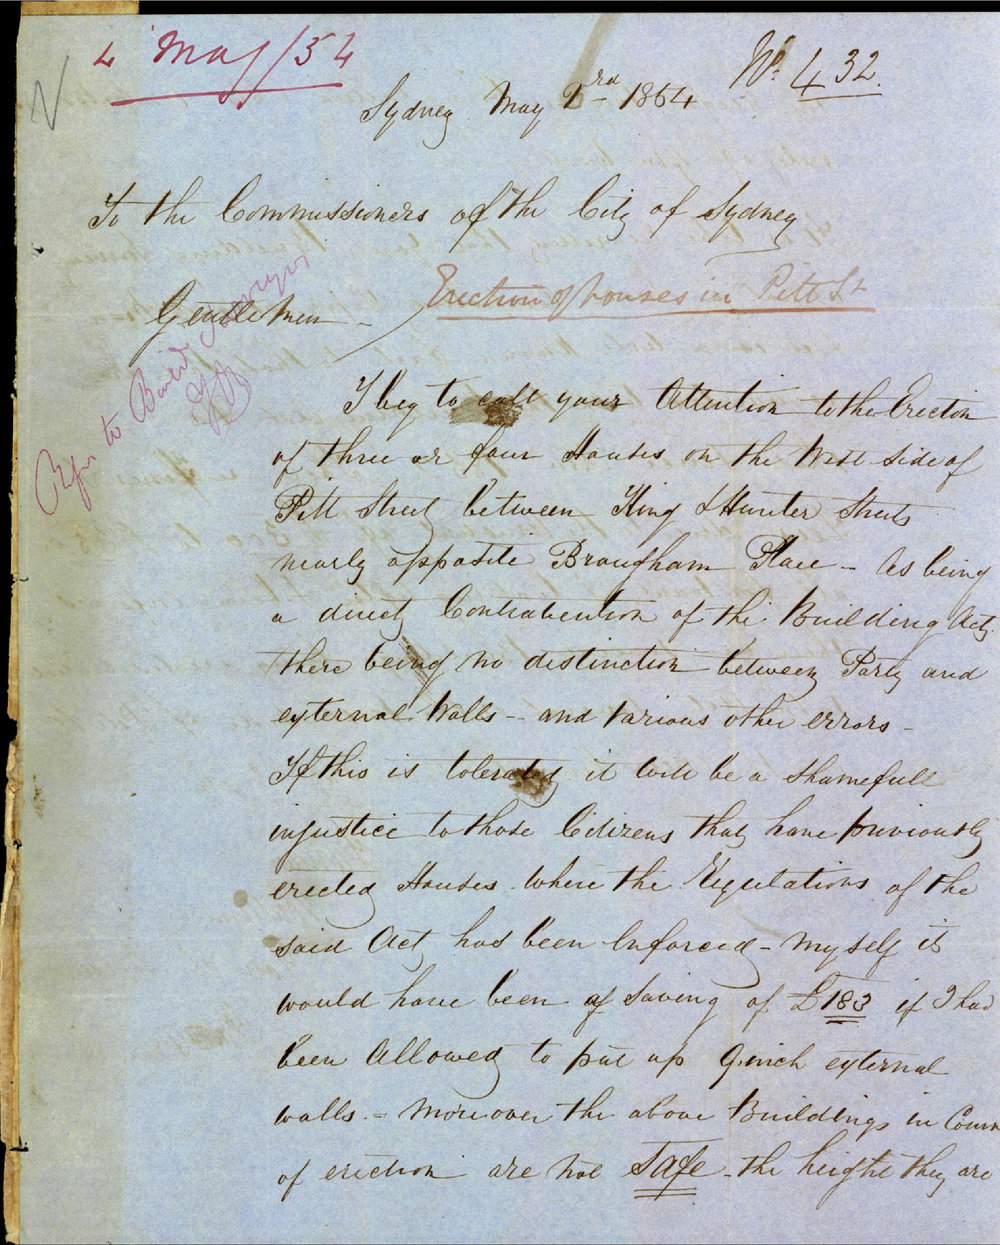 4 May/54
No. 432.
Sydney May 2nd 1854
To the Commissioners of the City of Sydney
Erection of houses in Pitt St
Gentlemen -
Refer to Build Surveyor
I beg to call your Attention to the Erection
of three or four Houses on the West side of
Pitt Street between King & Hunter Streets
nearly opposite Brougham Place - As being
a direct Contravention of the Building Act,
there being no distinction between Party and
external Walls - and various other errors -
If this is tolerated it will be a shamefull
injustice to those Citizens that have priviously
erected Houses where the Regulations of the
said Act has been Enforced - Myself it
would have been a saving of £183 if I had
been Allowed to put up 9 inch external
walls - Moreover the above Buildings in Cours
of erection are not Safe - the height they are